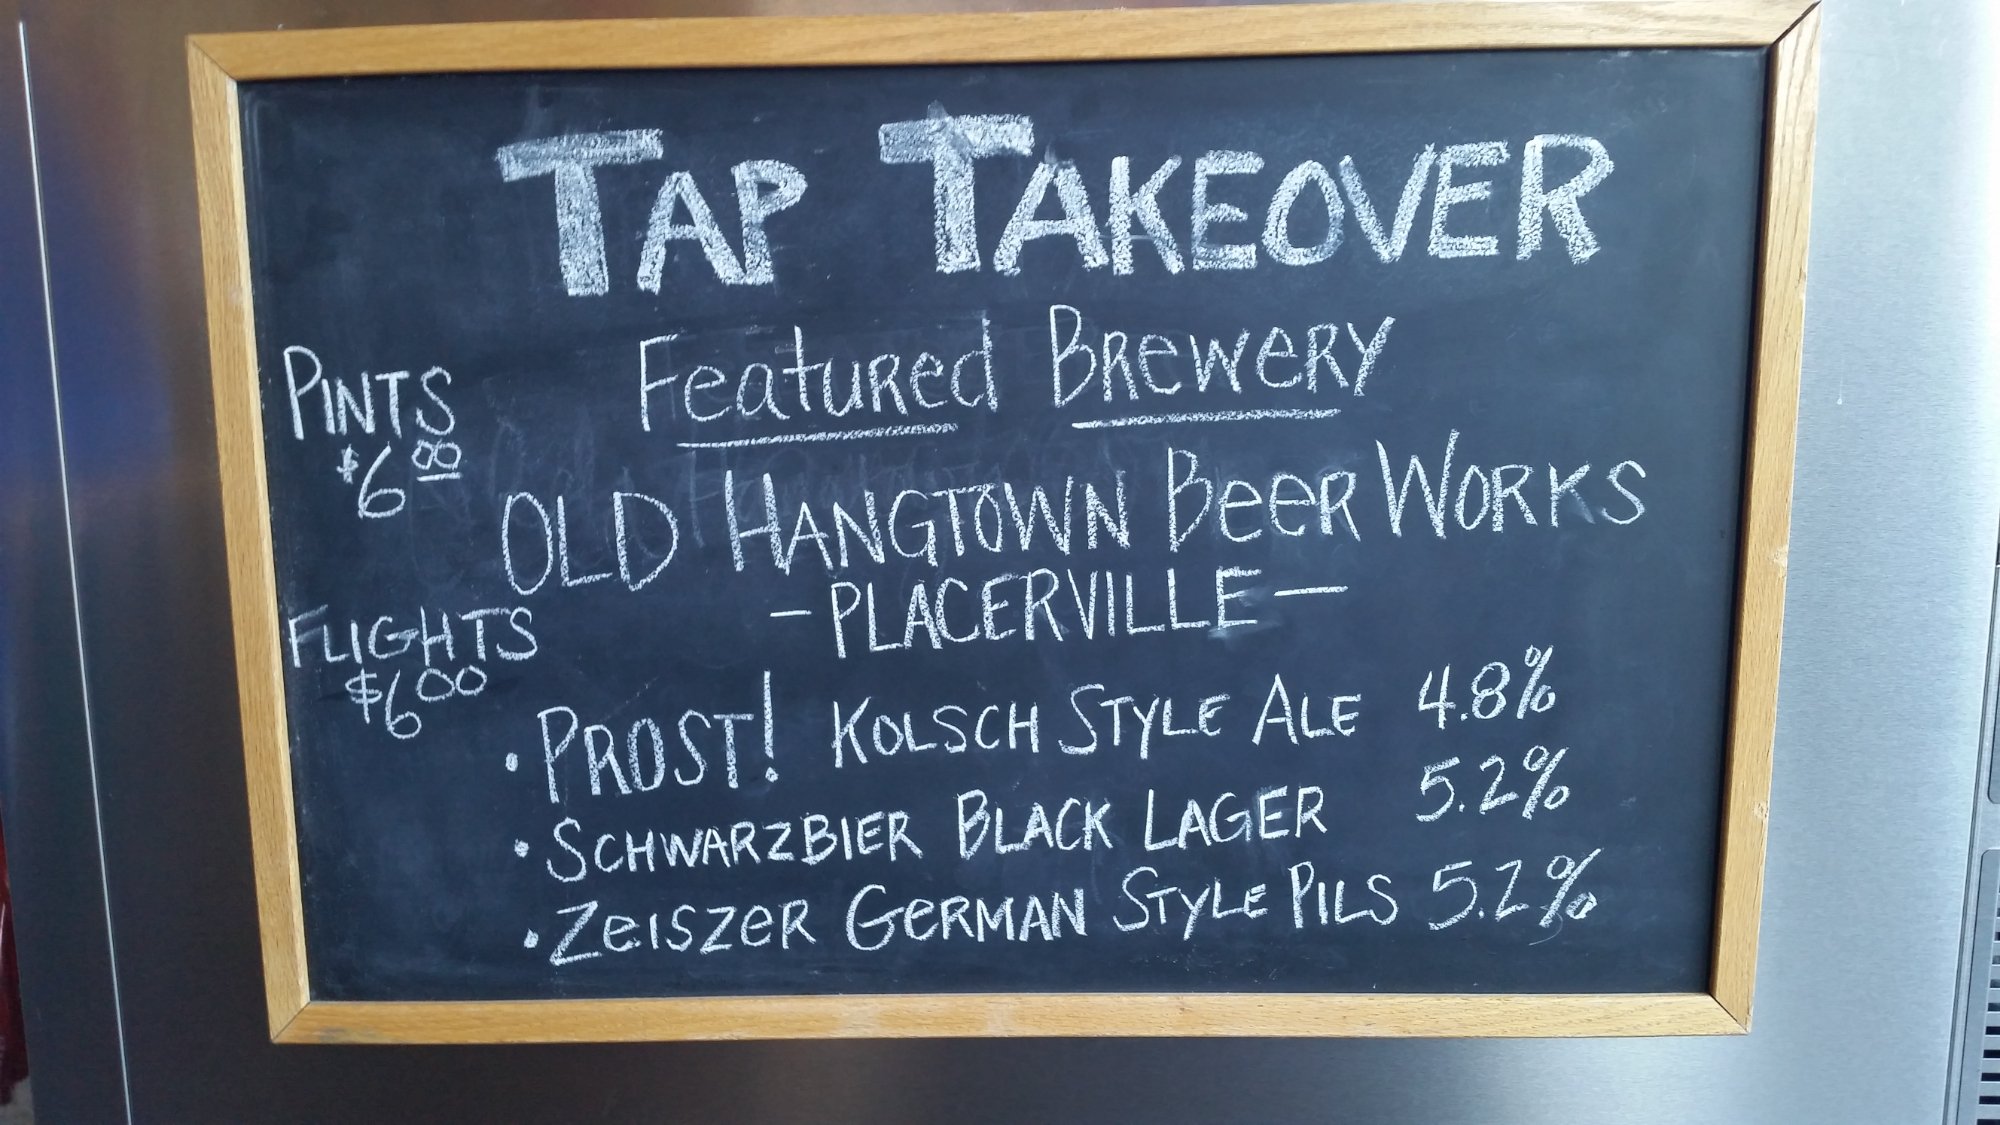 TAP TAKEOVER
Featured Brewery
PINTS
$6.00
OLD HANGTOWN BEER WORKS
- PLACERVILLE -
FLIGHTS
$6.00
• PROST! KOLSCH STYLE ALE 4.8%
• SCHWARZBIER BLACK LAGER 5.2%
• ZEISZER GERMAN STYLE PILS 5.2%